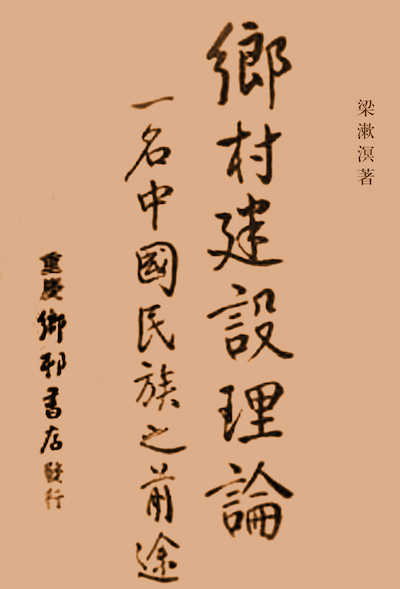 梁漱溟著
鄉村建設理論
一名中國民族之前途
重慶鄉邨書店發行